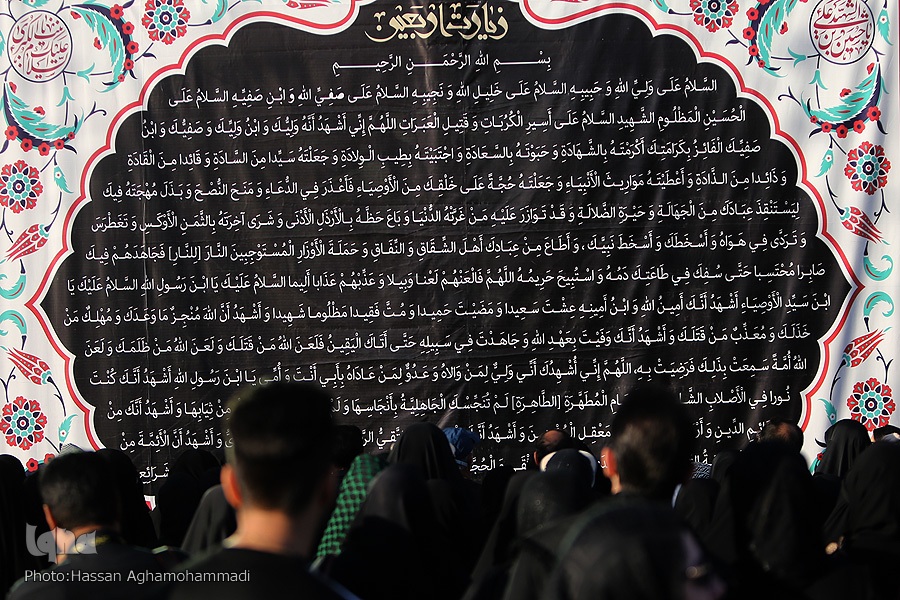 زیارت اربعین
بِسْمِ اللهِ الرَّحْمَنِ الرَّحِيمِ
السَّلامُ عَلَى وَلِيِّ اللهِ وَ حَبِيبِهِ السَّلامُ عَلَى خَلِيلِ اللهِ وَ نَجِيبِهِ السَّلامُ عَلَى صَفِيِّ اللهِ وَ ابْنِ صَفِيِّهِ السَّلامُ عَلَى
الْحُسَيْنِ الْمَظْلُومِ الشَّهِيدِ السَّلامُ عَلَى أَسِيرِ الْكُرُبَاتِ وَ قَتِيلِ الْعَبَرَاتِ اللَّهُمَّ إِنِّي أَشْهَدُ أَنَّهُ وَلِيُّكَ وَ ابْنُ وَلِيِّكَ وَ صَفِيُّكَ وَ ابْنُ
صَفِيِّكَ الْفَائِزُ بِكَرَامَتِكَ أَكْرَمْتَهُ بِالشَّهَادَةِ وَ حَبَوْتَهُ بِالسَّعَادَةِ وَ اجْتَبَيْتَهُ بِطِيبِ الْوِلادَةِ وَ جَعَلْتَهُ سَيِّدا مِنَ السَّادَةِ وَ قَائِدا مِنَ الْقَادَةِ
وَ ذَائِدا مِنَ الذَّادَةِ وَ أَعْطَيْتَهُ مَوَارِيثَ الْأَنْبِيَاءِ وَ جَعَلْتَهُ حُجَّةً عَلَى خَلْقِكَ مِنَ الْأَوْصِيَاءِ فَأَعْذَرَ فِي الدُّعَاءِ وَ مَنَحَ النُّصْحَ وَ بَذَلَ مُهْجَتَهُ فِيكَ
لِيَسْتَنْقِذَ عِبَادَكَ مِنَ الْجَهَالَةِ وَ حَيْرَةِ الضَّلالَةِ وَ قَدْ تَوَازَرَ عَلَيْهِ مَنْ غَرَّتْهُ الدُّنْيَا وَ بَاعَ حَظَّهُ بِالْأَرْذَلِ الْأَدْنَى وَ شَرَى آخِرَتَهُ بِالثَّمَنِ الْأَوْكَسِ وَ تَغَطْرَسَ
وَ تَرَدَّى فِي هَوَاهُ وَ أَسْخَطَكَ وَ أَسْخَطَ نَبِيَّكَ ، وَ أَطَاعَ مِنْ عِبَادِكَ أَهْلَ الشِّقَاقِ وَ النِّفَاقِ وَ حَمَلَةَ الْأَوْزَارِ الْمُسْتَوْجِبِينَ النَّارَ [لِلنَّارِ] فَجَاهَدَهُمْ فِيكَ
صَابِرا مُحْتَسِبا حَتَّى سُفِكَ فِي طَاعَتِكَ دَمُهُ وَ اسْتُبِيحَ حَرِيمُهُ اللَّهُمَّ فَالْعَنْهُمْ لَعْنا وَبِيلا وَ عَذِّبْهُمْ عَذَابا أَلِيما السَّلامُ عَلَيْكَ يَا ابْنَ رَسُولِ اللهِ السَّلامُ عَلَيْكَ يَا
ابْنَ سَيِّدِ الْأَوْصِيَاءِ أَشْهَدُ أَنَّكَ أَمِينُ اللهِ وَ ابْنُ أَمِينِهِ عِشْتَ سَعِيدا وَ مَضَيْتَ حَمِيدا وَ مُتَّ فَقِيدا مَظْلُوما شَهِيدا وَ أَشْهَدُ أَنَّ اللهَ مُنْجِزٌ مَا وَعَدَكَ وَ مُهْلِكٌ مَنْ
خَذَلَكَ وَ مُعَذِّبٌ مَنْ قَتَلَكَ وَ أَشْهَدُ أَنَّكَ وَفَيْتَ بِعَهْدِ اللهِ وَ جَاهَدْتَ فِي سَبِيلِهِ حَتَّى أَتَاكَ الْيَقِينُ فَلَعَنَ اللهُ مَنْ قَتَلَكَ وَ لَعَنَ اللهُ مَنْ ظَلَمَكَ وَ لَعَنَ
اللهُ أُمَّةً سَمِعَتْ بِذَلِكَ فَرَضِيَتْ بِهِ، اللَّهُمَّ إِنِّي أُشْهِدُكَ أَنِّي وَلِيٌّ لِمَنْ وَالاهُ وَ عَدُوٌّ لِمَنْ عَادَاهُ بِأَبِي أَنْتَ وَ أُمِّي يَا ابْنَ رَسُولِ اللهِ أَشْهَدُ أَنَّكَ كُنْتَ
نُورا فِي الْأَصْلابِ الْمُطَهَّرَةِ [الطَّاهِرَةِ] لَمْ تُنَجِّسْكَ الْجَاهِلِيَّةُ بِأَنْجَاسِهَا وَ ثِيَابِهَا وَ أَشْهَدُ أَنَّكَ مِنْ
الدِّينِ وَ مَعْقِلِ وَ أَشْهَدُ وَ أَشْهَدُ أَنَّ الْأَئِمَّةَ مِنْ
وَ شَرَائِعِ
iqna
Photo:Hassan Aghamohammadi